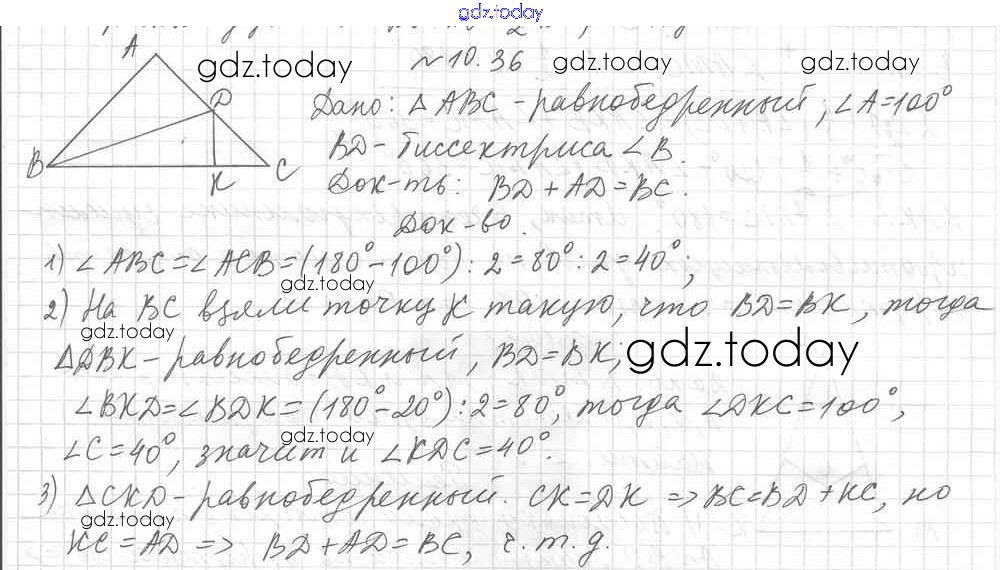 gdz.today
№10.36
A
gdz.today gdz.today gdz.today
D
Дано: △ABC - равнобедренный, ∠A=100°
B
K
C
BD - биссектриса ∠B.
Док-ть: BD + AD = BC.
Док-во.
1) ∠ABC = ∠ACB = (180° - 100°) : 2 = 80° : 2 = 40°;
gdz.today
2) На BC взяли точку K такую, что BD = BK, тогда
gdz.today
△DBK - равнобедренный, BD = BK;
gdz.today
∠BKD = ∠BDK = (180° - 20°) : 2 = 80°, тогда ∠DKC = 100°,
gdz.today
∠C = 40°, значит и ∠KDC = 40°.
3) △CKD - равнобедренный. CK = DK => BC = BD + KC, но
gdz.today
KC = AD => BD + AD = BC, ч.т.д.